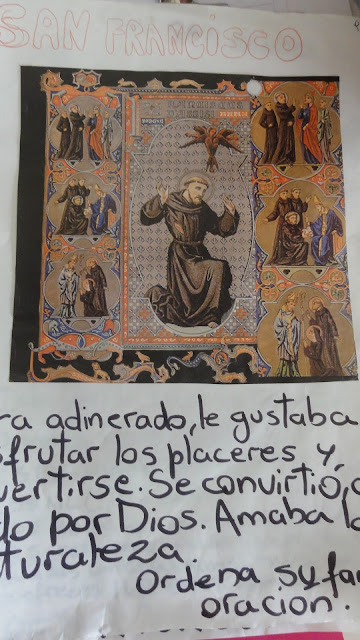 SAN FRANCISCO
ra adinerado, le gustaba
sfrutar los placeres y
vertirse. Se convirtió,
do por Dios. Amaba la
turaleza.
Ordena su fa
oración.